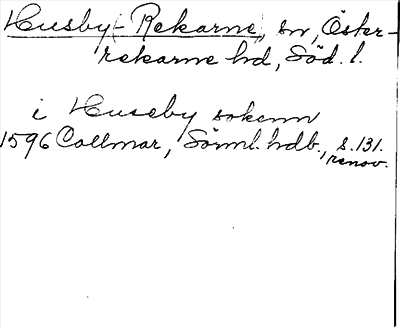 Husby-Rekarne, sn, Öster-
rekarne hd, Söd. l.
i Huseby sokenn
1596 Collmar, Sörml. hdb., s. 131.
renov.